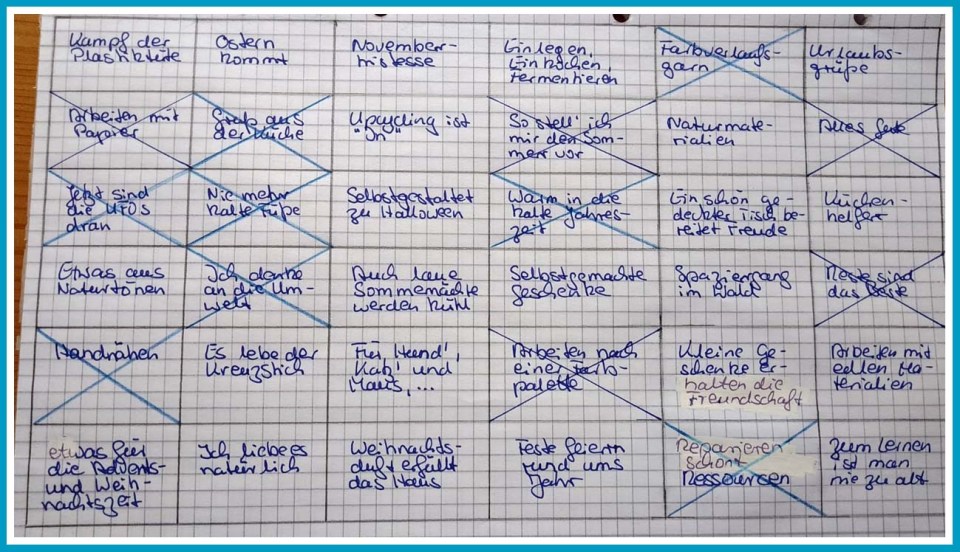 Kampf der
Plastiktüte
Ostern
kommt
November-
mistesse
Einlegen,
Einkochen,
Fermentieren
Farbverlaufs-
garn
Urlaubs-
grüße
Arbeiten mit
Papier
Spaß aus
der Küche
Upcycling ist
"In"
So stell' ich
mir den Som-
mer vor
Naturmate-
rialien
Altes
Jetzt sind
die UFOs
dran
Nie mehr
kalte Füße
Selbstgestaltet
zu Halloween
Warm in die
kalte Jahres-
zeit
Ein schön ge-
deckter Tisch be-
reitet Freude
Küchen-
helfer
Etwas aus
Naturtönen
Ich denke
an die Um-
welt
Auch laue
Sommernächte
werden kühl
Selbstgemachte
Geschenke
Spaziergang
im Wald
Reste sind
das Beste
Handnähen
Es lebe der
Kreuzstich
Für Hund',
Katz' und
Maus, ...
Arbeiten nach
einer Farb-
palette
Kleine Ge-
schenke er-
halten die
Freundschaft
Arbeiten mit
edlen Ma-
terialien
etwas für
die Advents-
und Weih-
nachtszeit
Ich liebe es
natürlich
Weihnachts-
duft erfüllt
das Haus
Feste feiern
rund ums
Jahr
Reparieren
schont
Ressourcen
Zum Lernen
ist man
nie zu alt